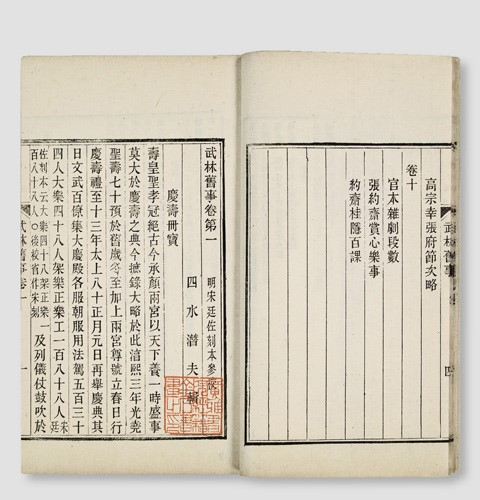 武林舊事
四
高宗幸張府節次略
卷十
官本雜劇段數
張約齋賞心樂事
約齋桂隱百課
武林舊事卷第一 明宋廷佐刻本參校
四水潛夫輯
慶壽冊寶
壽皇聖孝冠絕古今承顏兩宮以天下養一時盛事
莫大於慶壽之典今摭錄大略於此淳熙三年光堯
聖壽七十預於舊歲冬至加上兩宮尊號立春日行
慶壽禮至十三年太上八十正月元日再舉慶典其
日文武百僚集大慶殿各服朝服用法駕五百三十
四人大樂四十八人架樂正樂工一百八十八人宋廷
佐刻本云大樂四十八架樂正
百八十八人〇後校省作宋刻
及列儀仗鼓吹於
武林舊事卷一
一